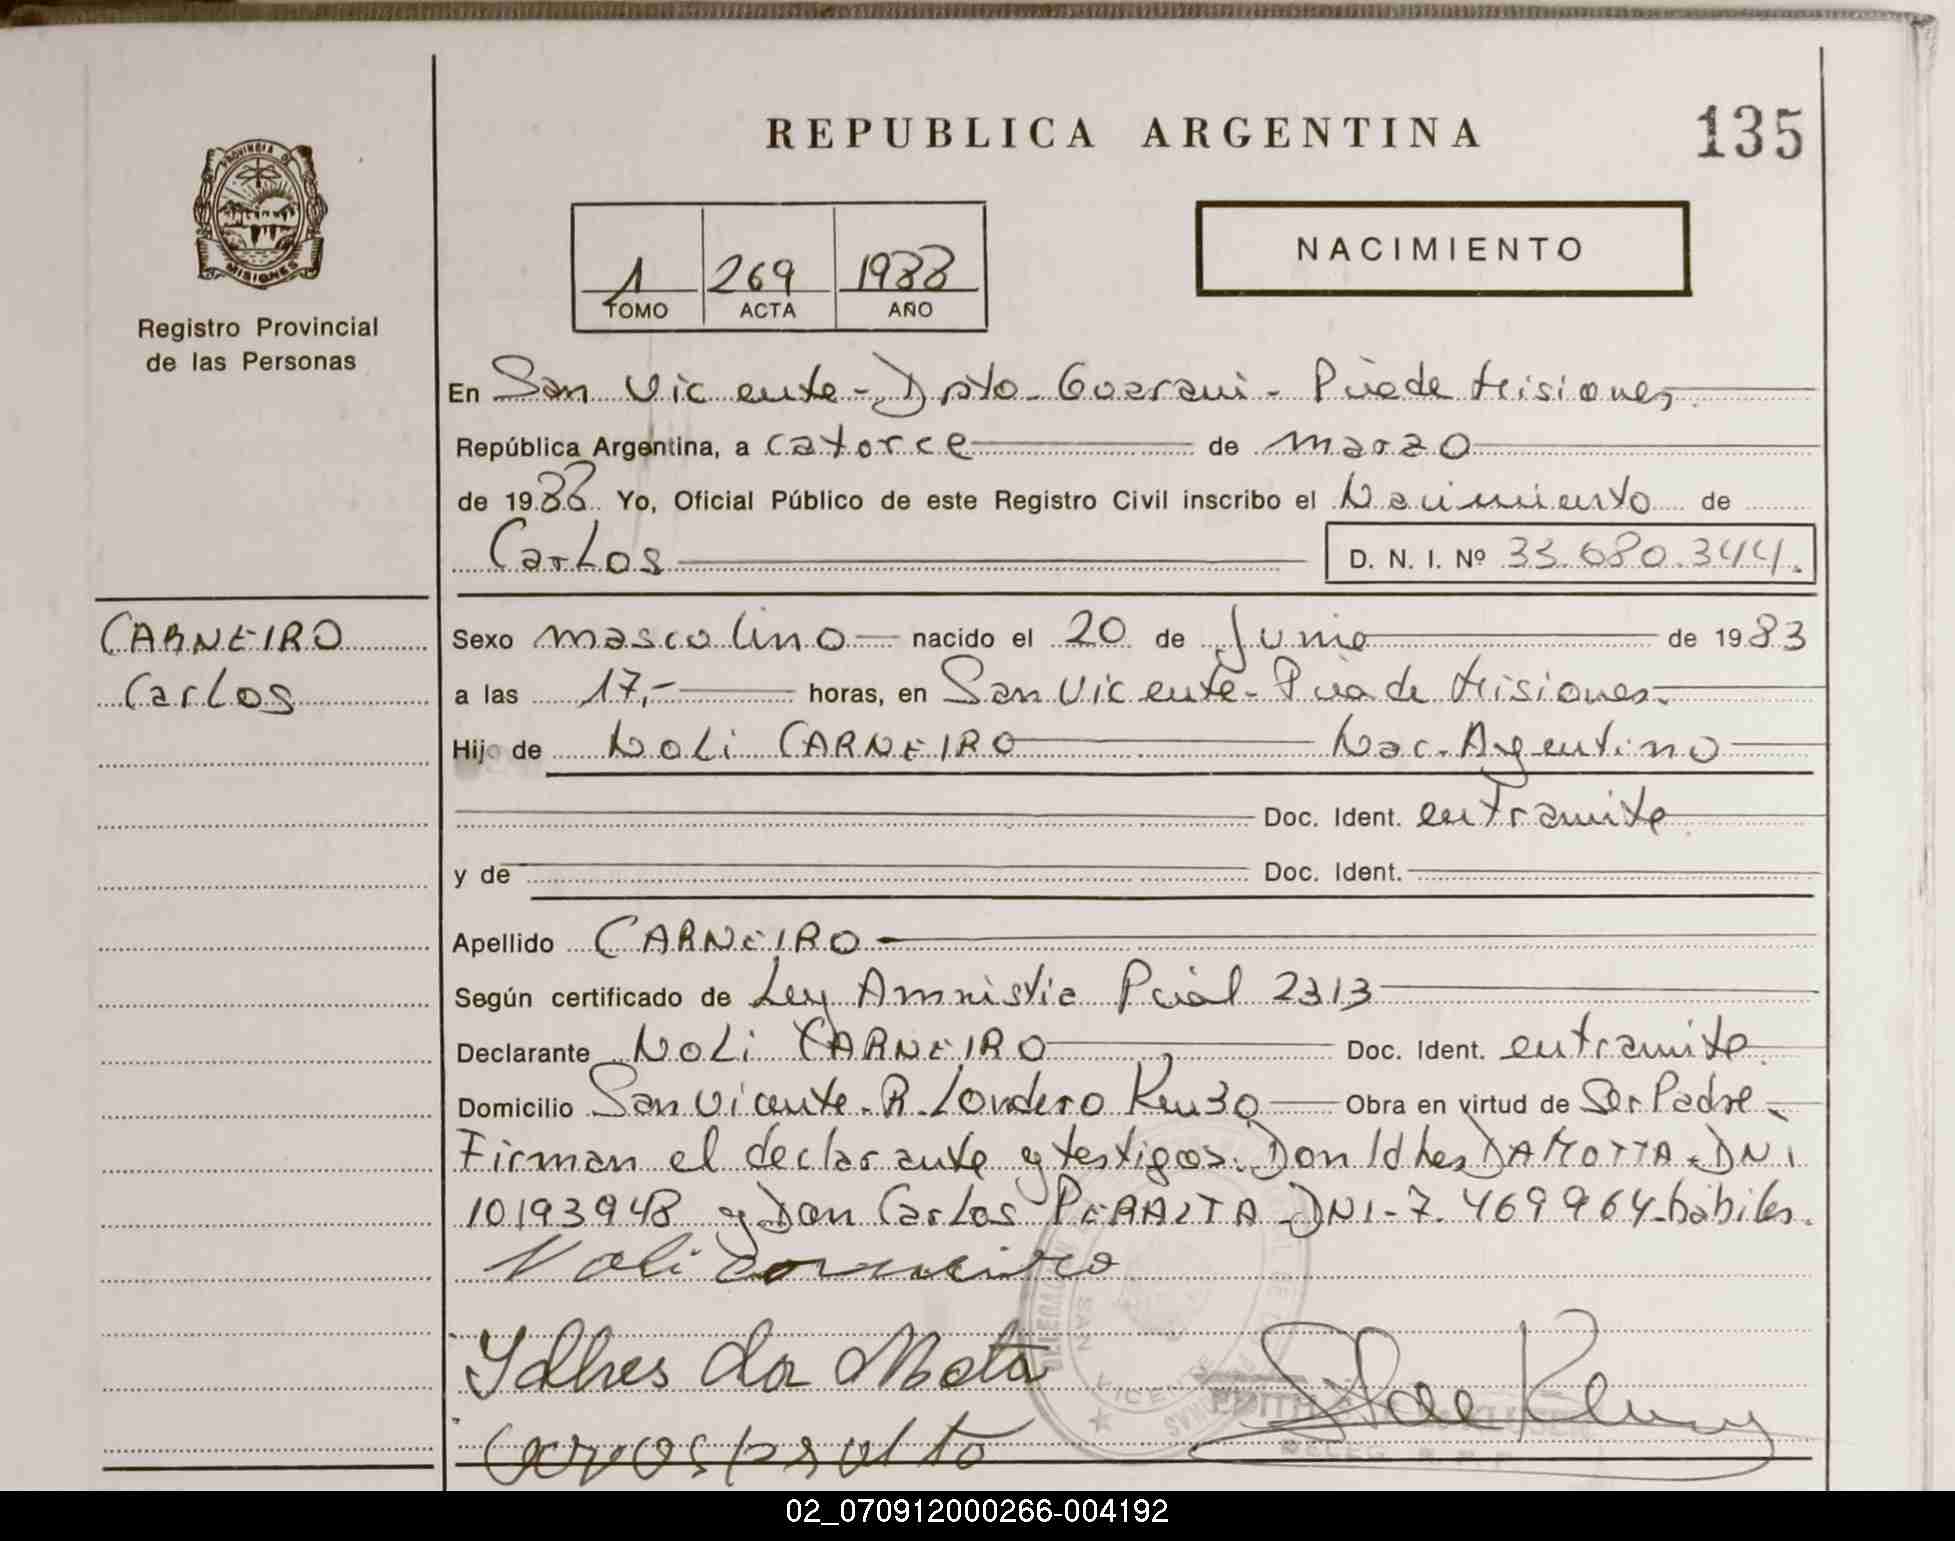 REPUBLICA ARGENTINA
135
PROVINCIA DE
MISIONES
Registro Provincial
de las Personas
1 269 1988
TOMO ACTA AÑO
NACIMIENTO
En San Vicente - Dpto - Guarani - Pcia de Misiones
República Argentina, a catorce de marzo
de 1988 Yo, Oficial Público de este Registro Civil inscribo el Nacimiento de
Carlos D. N. I. Nº 33.680.344.
CARNEIRO
Carlos
Sexo masculino nacido el 20 de Junio de 1983
a las 17,- horas, en San Vicente - Pcia de Misiones.
Hijo de Noli CARNEIRO Nac. Argentino
Doc. Ident. en tramite
y de Doc. Ident.
Apellido CARNEIRO
Según certificado de Ley Amnistia Pcial 2313
Declarante Noli CARNEIRO Doc. Ident. en tramite
Domicilio San Vicente - R. Londero Km 30 Obra en virtud de Ser Padre -
Firman el declarante y testigos. Don Idhes DA MOTTA - DNI
10193948 y Don Carlos PERALTA - DNI - 7.469964 - hábiles.
Noli Carneiro
Idhes da Mota
Carlos peralto
SAN VICENTE
MISIONES
EDITH
02_070912000266-004192